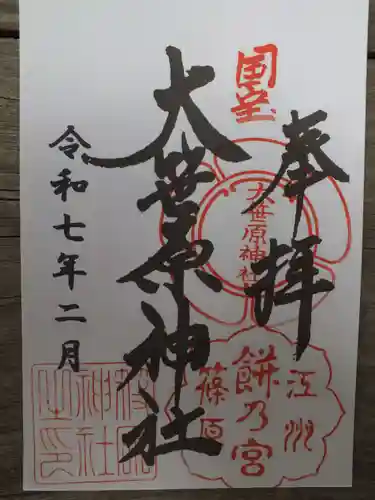 国宝
奉拝
大笹原神社
江州
餅乃宮
篠原
大笹原神社
令和七年二月